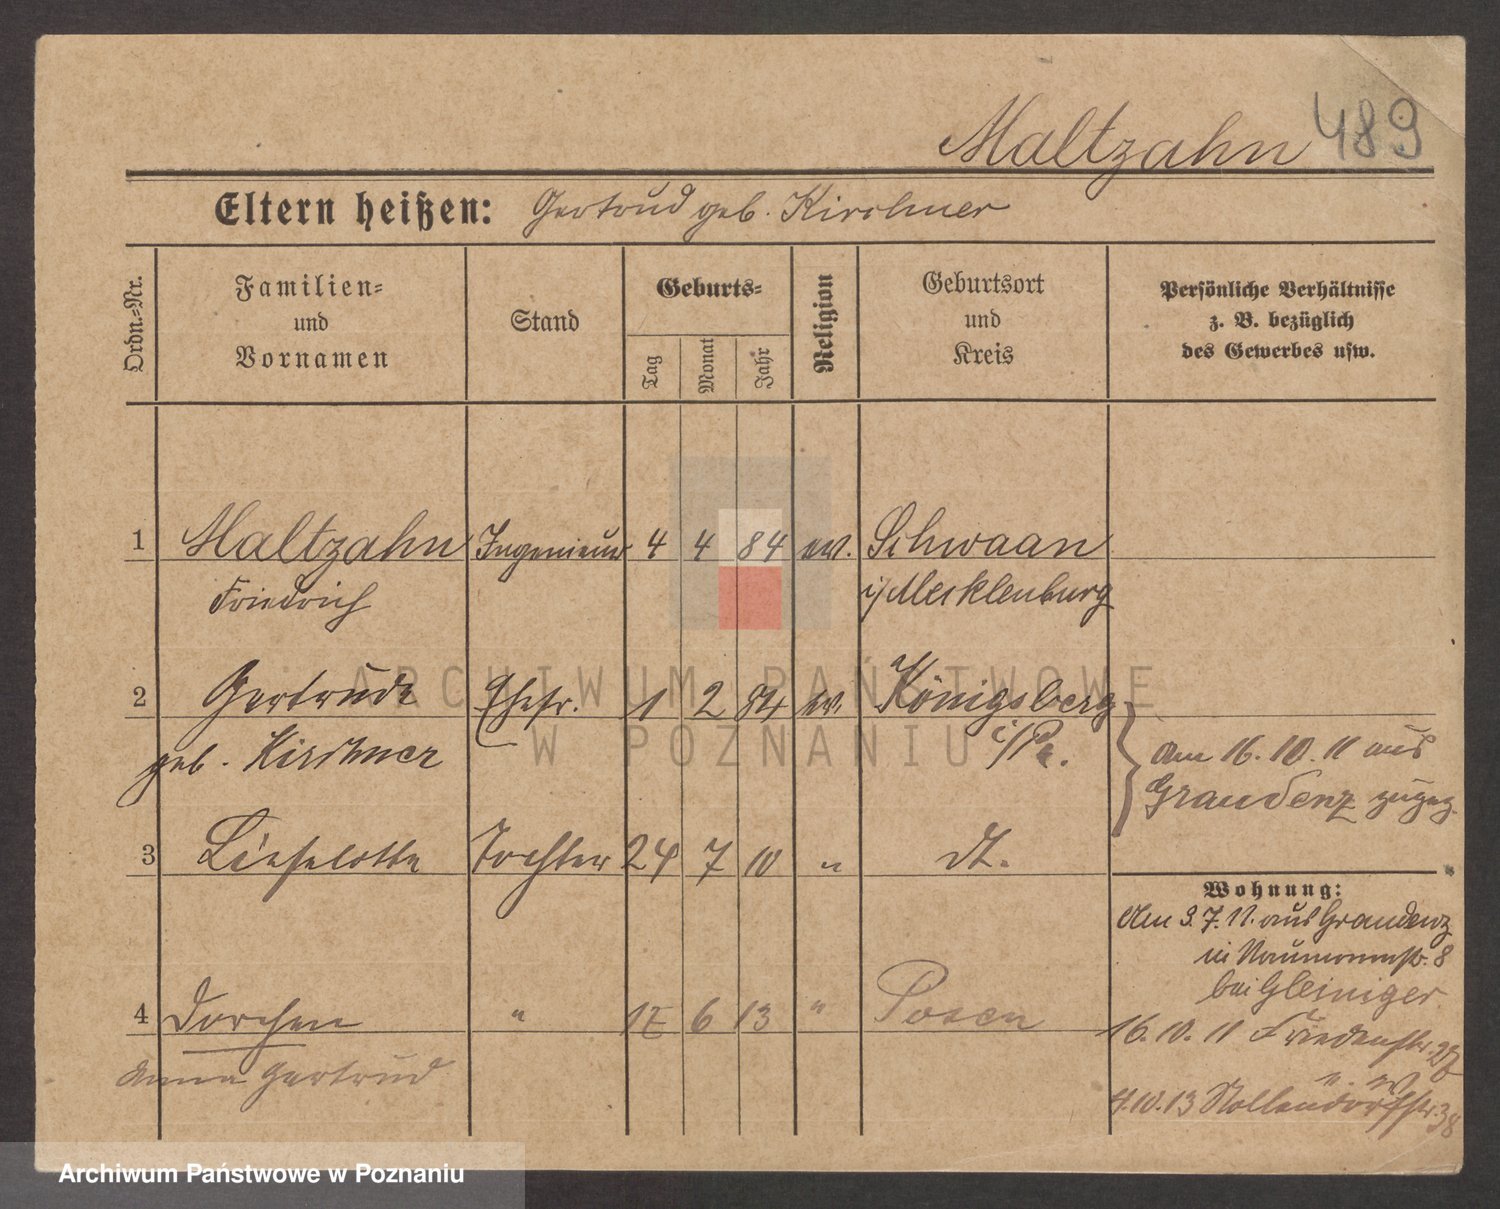 Maltzahn 489
Eltern heißen: Gertrud geb. Kirchner
Ordn.-Nr.
Familien-
und
Vornamen
Stand
Geburts-
Tag
Monat
Jahr
Religion
Geburtsort
und
Kreis
Persönliche Verhältnisse
z. B. bezüglich
des Gewerbes usw.
1 Maltzahn Ingenieur 4 4 84 ev. Schwaan
Friedrich i/Mecklenburg
2 Gertrude Ehefr. 1 2 84 ev. Königsberg
geb. Kirchner i/Pr.
am 16.10.11 aus
Graudenz zugez.
3 Lieselotte Tochter 24 7 10 " dt.
Wohnung:
Am 3.7.11. aus Graudenz
in Naumannstr. 8
bei Gleiniger
4 Dorchen " 17 6 13 " Posen
16.10.11 Friedenstr. 27
Anna Gertrud
4.10.13 Nollendorfstr. 38
ARCHIWUM PAŃSTWOWE
W POZNANIU
Archiwum Państwowe w Poznaniu